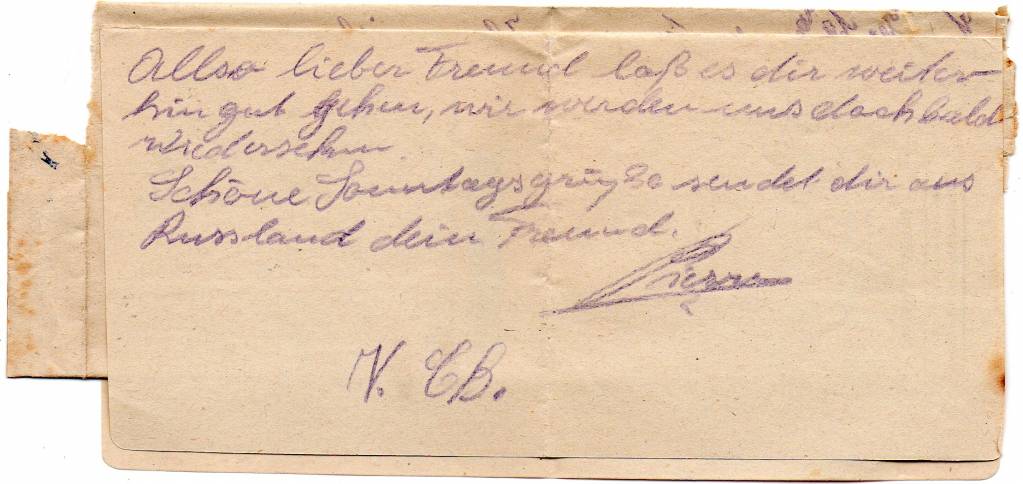 Allso lieber Freund laß es dir weiter-
hin gut gehen, wir werden uns doch bald
wiedersehen.
Schöne Sonntagsgrüße sendet dir aus
Russland dein Freund.
Pierre
V. C B.